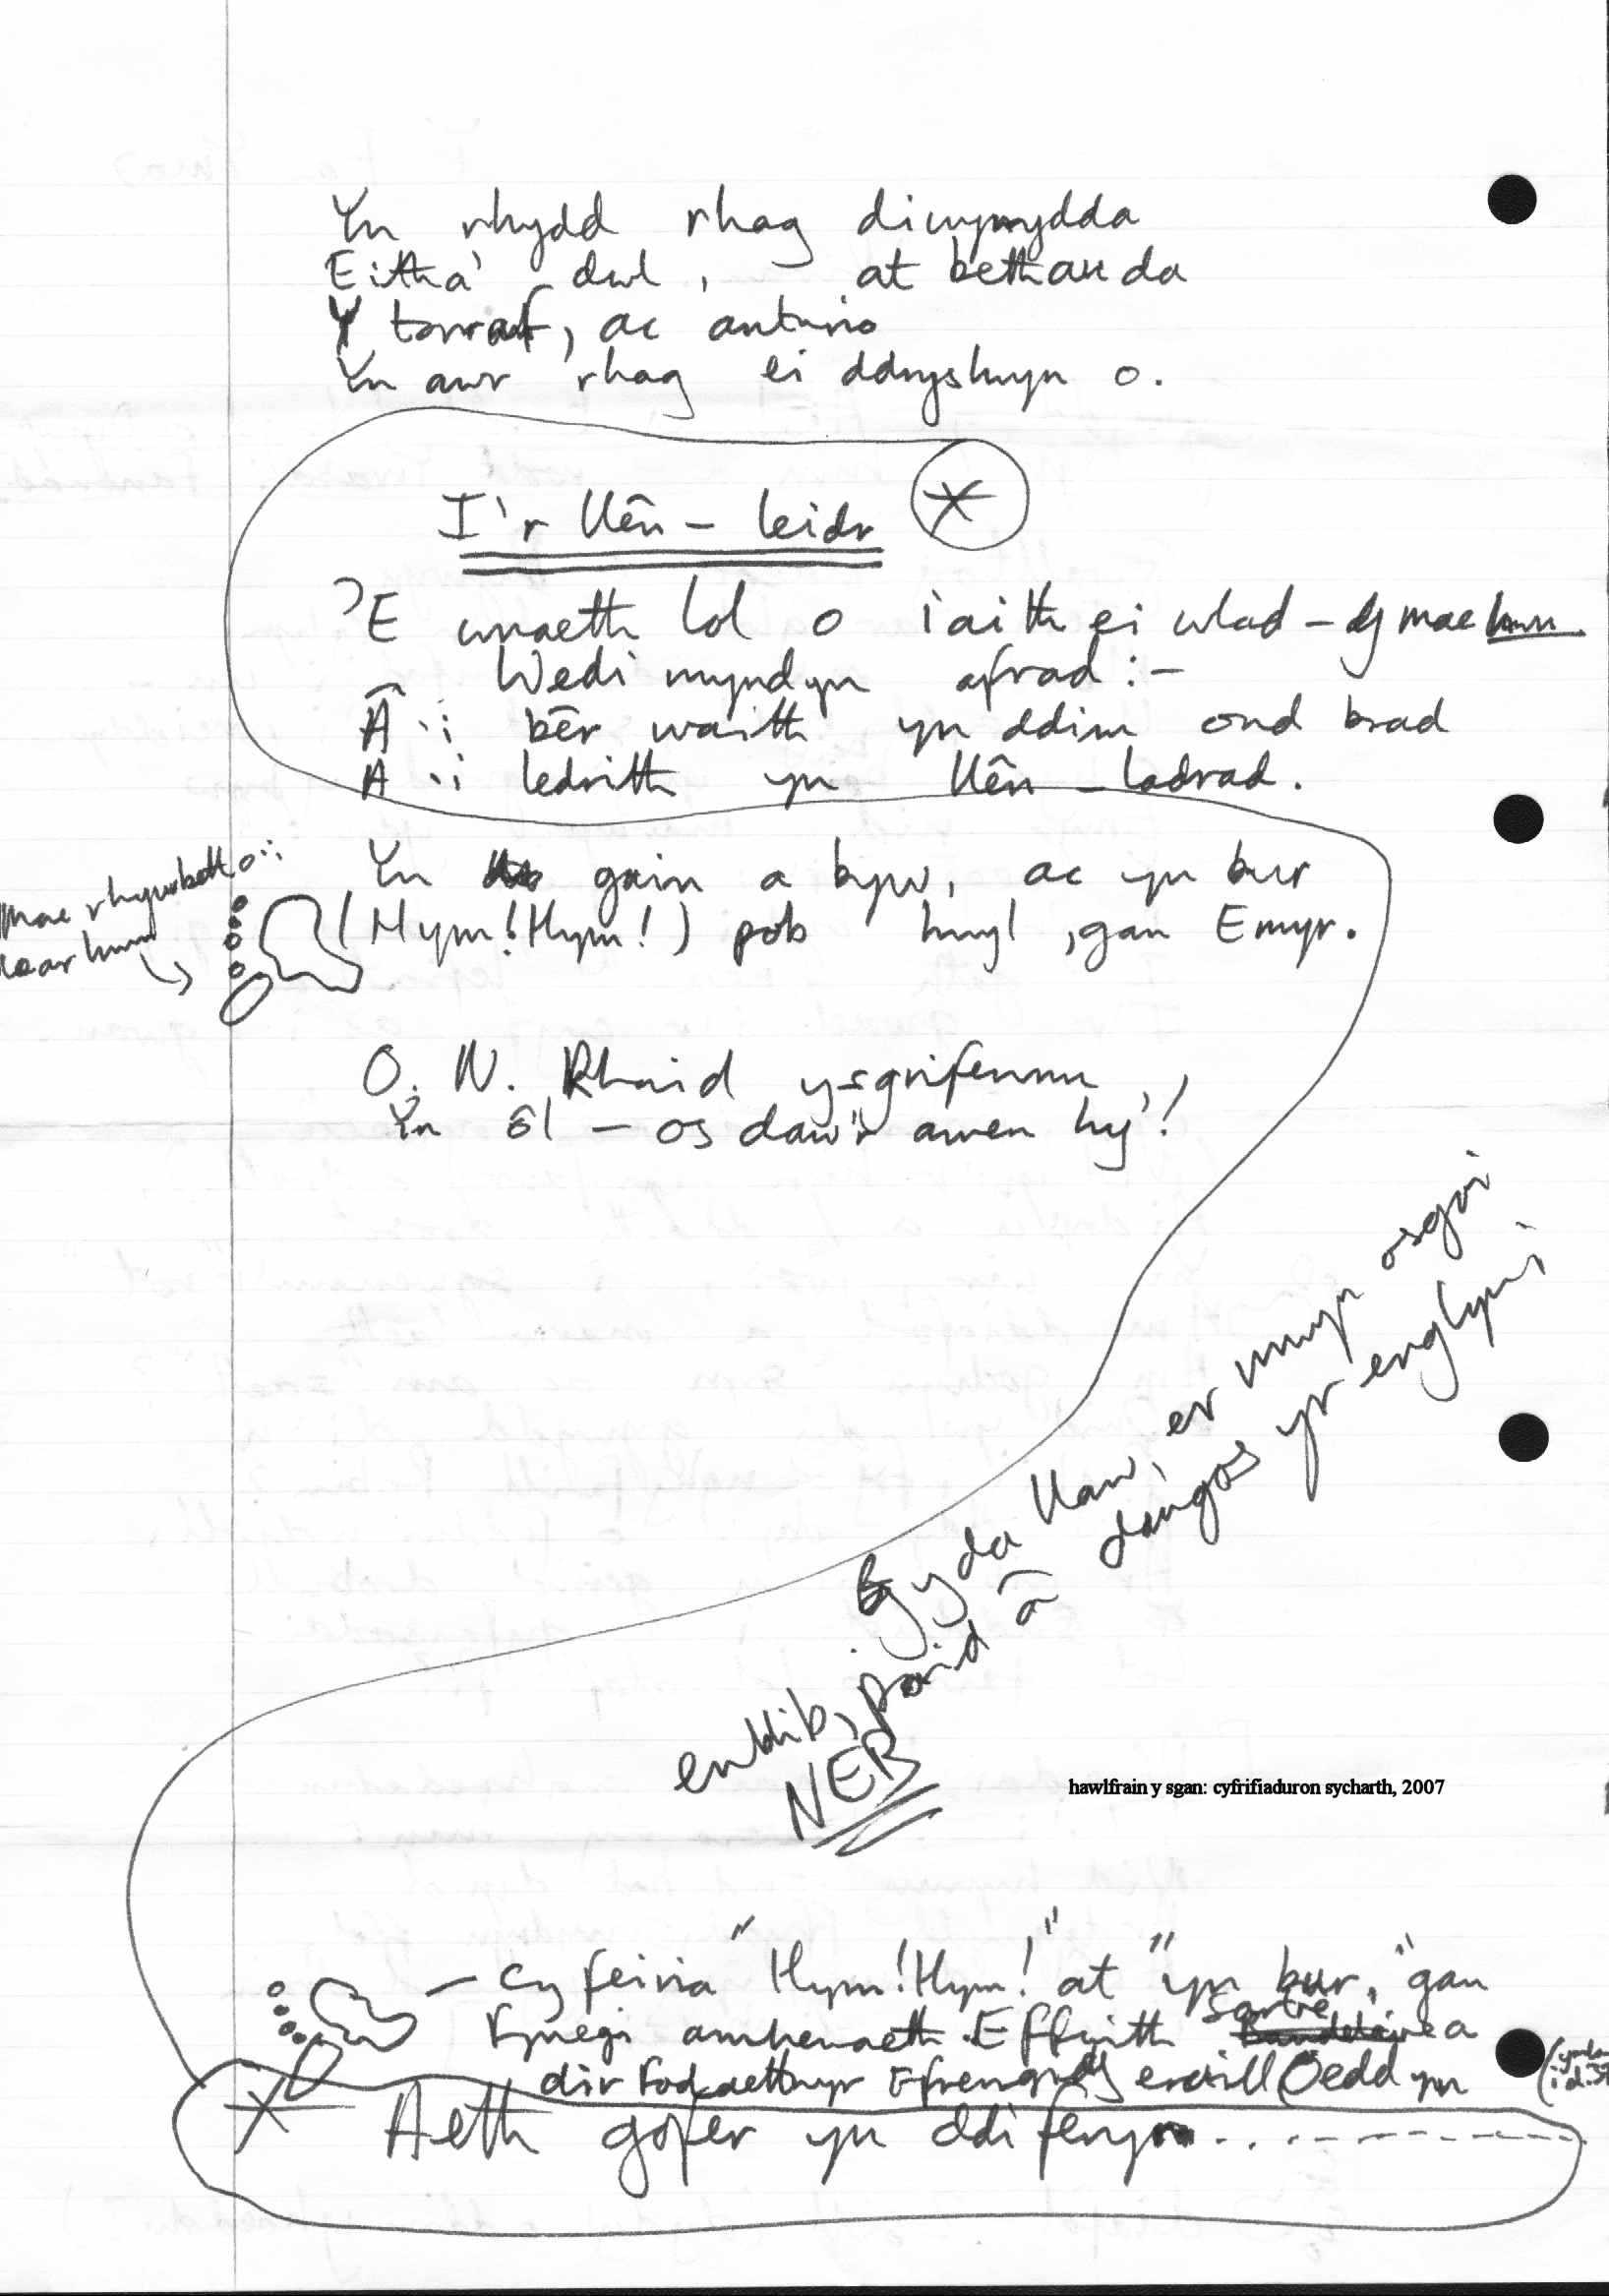 Yn rhydd rhag
Eitha' dwl, at bethau da
Y torraf, ac anturio
Yn awr rhag ei ddryslwyn o.
I'r llên-leidr *
'E wnaeth lol o iaith ei wlad – mae hwn
Wedi mynd yn afrad :–
Â'i bêr waith yn ddim ond brad
A'i ledrith yn llên-ladrad.
Yn gain a byw, ac yn bur
(Hym! Hym!) pob hwyl, gan Emyr.
Mae rhywbeth
ar hwn
O. N. Rhaid ysgrifennu
Yn ôl – os daw'r awen hy'!
Gyda llaw, er mwyn osgoi
enllib, paid â dangos yr englyn i
NEB
hawlfrain y sgan: cyfrifiaduron sycharth, 2007
– Cyfeiria "Hym! Hym!" at "yn bur," gan
Fynegi amheuaeth. Effaith Sartre a
dirfodaethwyr Ffrengig eraill Oedd yn
* Aeth gofer yn ddifenyn.........